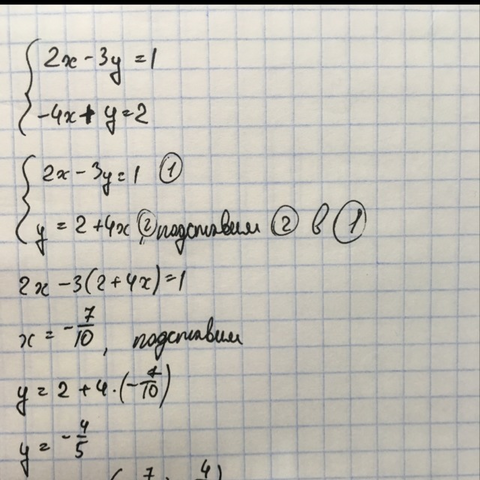 2x - 3y = 1
-4x + y = 2
2x - 3y = 1 ①
y = 2 + 4x ②, подставим ② в ①
2x - 3(2 + 4x) = 1
x = -7/10, подставим
y = 2 + 4·(-7/10)
y = -4/5
(7 ; 4)